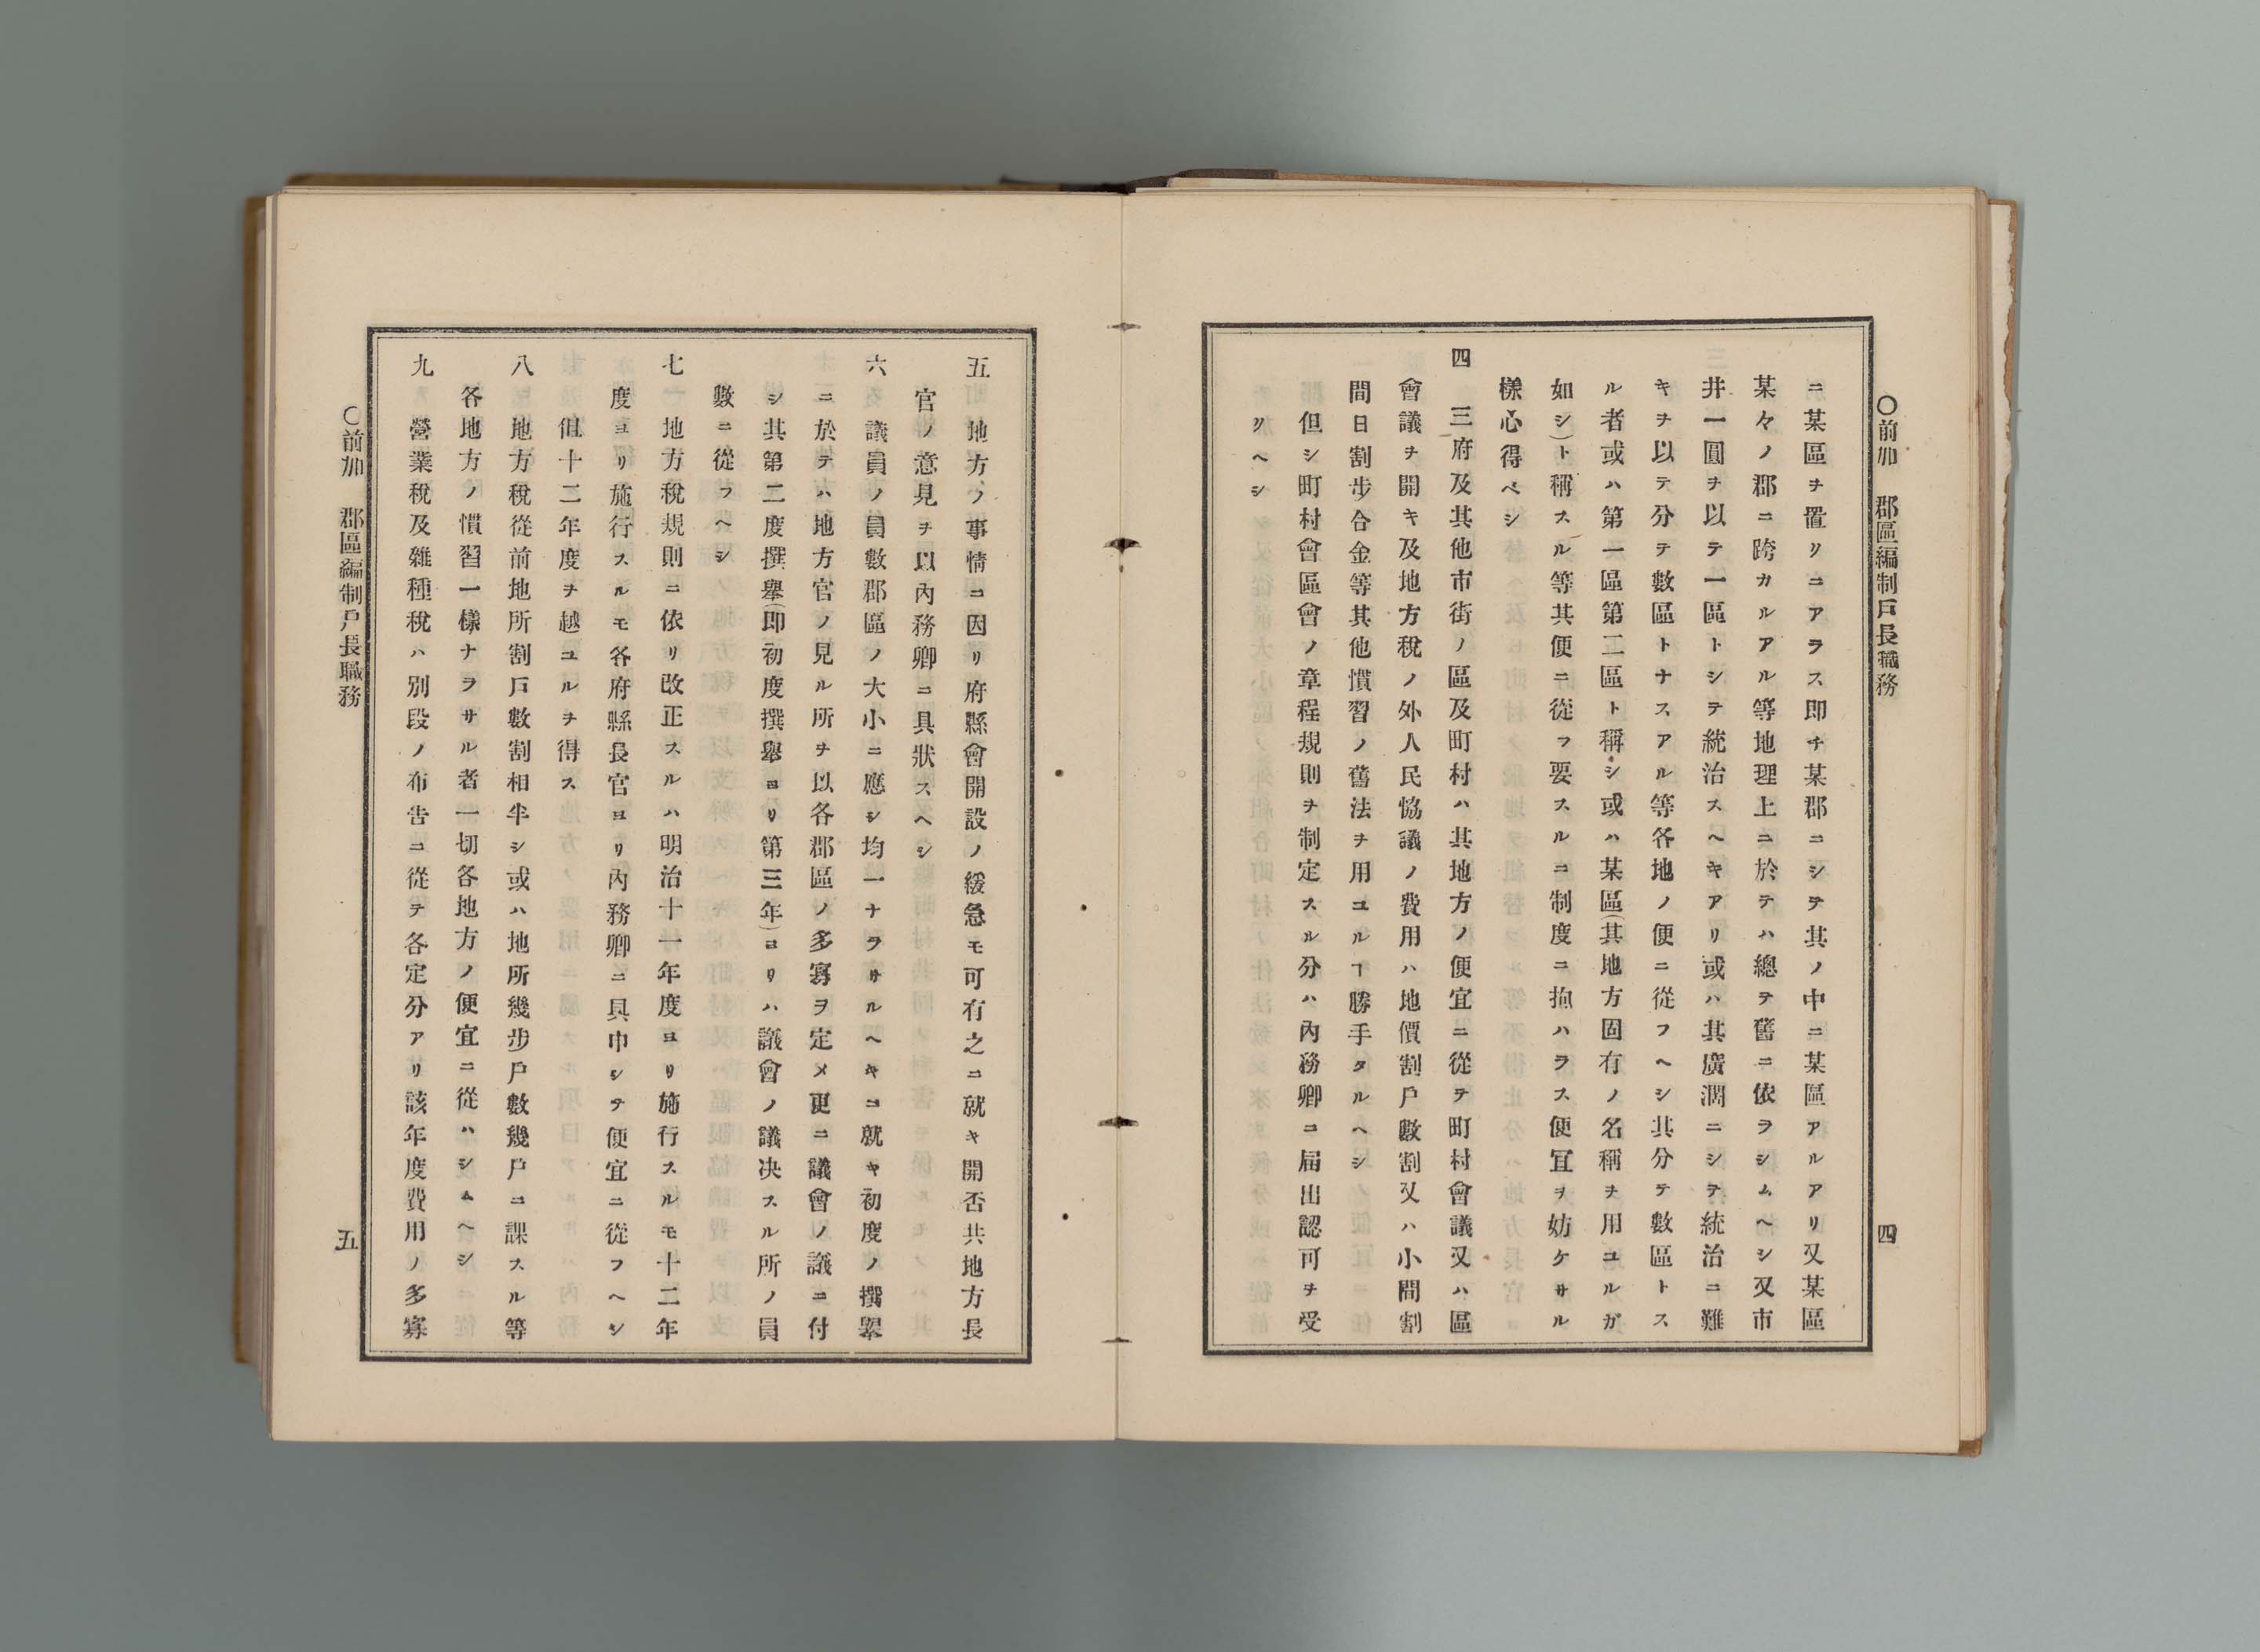 ○前加　郡區編制戶長職務
四
ニ某區ヲ置リニアラス即チ某郡ニシテ其ノ中ニ某區アルアリ又某區
某々ノ郡ニ跨カルアル等地理上ニ於テハ總テ舊ニ依ラシムヘシ又市
井一圓ヲ以テ一區トシテ統治スヘキアリ或ハ其廣濶ニシテ統治ニ難
キヲ以テ分テ數區トナスアル等各地ノ便ニ從フヘシ其分テ數區トス
ル者或ハ第一區第二區ト稱シ或ハ某區(其地方固有ノ名稱ヲ用ユルガ
如シ)ト稱スル等其便ニ從フ要スルニ制度ニ拘ハラス便宜ヲ妨ケサル
樣心得ベシ
四　三府及其他市街ノ區及町村ハ其地方ノ便宜ニ從テ町村會議又ハ區
會議ヲ開キ及地方稅ノ外人民恊議ノ費用ハ地價割戶數割又ハ小間割
間日割步合金等其他慣習ノ舊法ヲ用ユルヿ勝手タルヘシ
但シ町村會區會ノ章程規則ヲ制定スル分ハ內務卿ニ屆出認可ヲ受
リヘシ
五　地方ノ事情ニ因リ府縣會開設ノ緩急モ可有之ニ就キ開否共地方長
官ノ意見ヲ以內務卿ニ具狀スヘシ
六　議員ノ員數郡區ノ大小ニ應シ均一ナラサルヘキニ就キ初度ノ撰擧
ニ於テハ地方官ノ見ル所ヲ以各郡區ノ多寡ヲ定メ更ニ議會ノ議ニ付
シ其第二度撰擧(即初度撰擧ヨリ第三年)ヨリハ議會ノ議决スル所ノ員
數ニ從フヘシ
七　地方稅規則ニ依リ改正スルハ明治十一年度ヨリ施行スルモ十二年
度ヨリ施行スルモ各府縣長官ヨリ內務卿ニ具申シテ便宜ニ從フヘシ
但十二年度ヲ越ユルヲ得ス
八　地方稅從前地所割戶數割相半シ或ハ地所幾步戶數幾戶ニ課スル等
各地方ノ慣習一樣ナラサル者一切各地方ノ便宜ニ從ハシムヘシ
九　營業稅及雜種稅ハ別段ノ布告ニ從テ各定分アリ該年度費用ノ多寡
○前加　郡區編制戶長職務
五